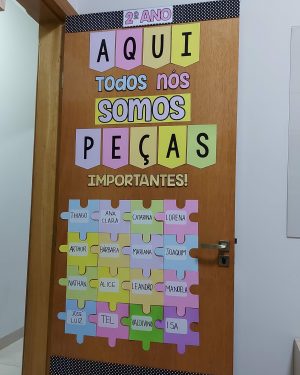 2º ANO
AQUI
TODOS NÓS
SOMOS
PEÇAS
IMPORTANTES!
THIAGO
ANA CLARA
CATARINA
LORENA
ARTHUR
BÁRBARA
MARIANA
JOAQUIM
NATHAN
ALICE
LEANDRO
MANOELA
JOSÉ LUIZ
TEL
VALDIVINO
ISA